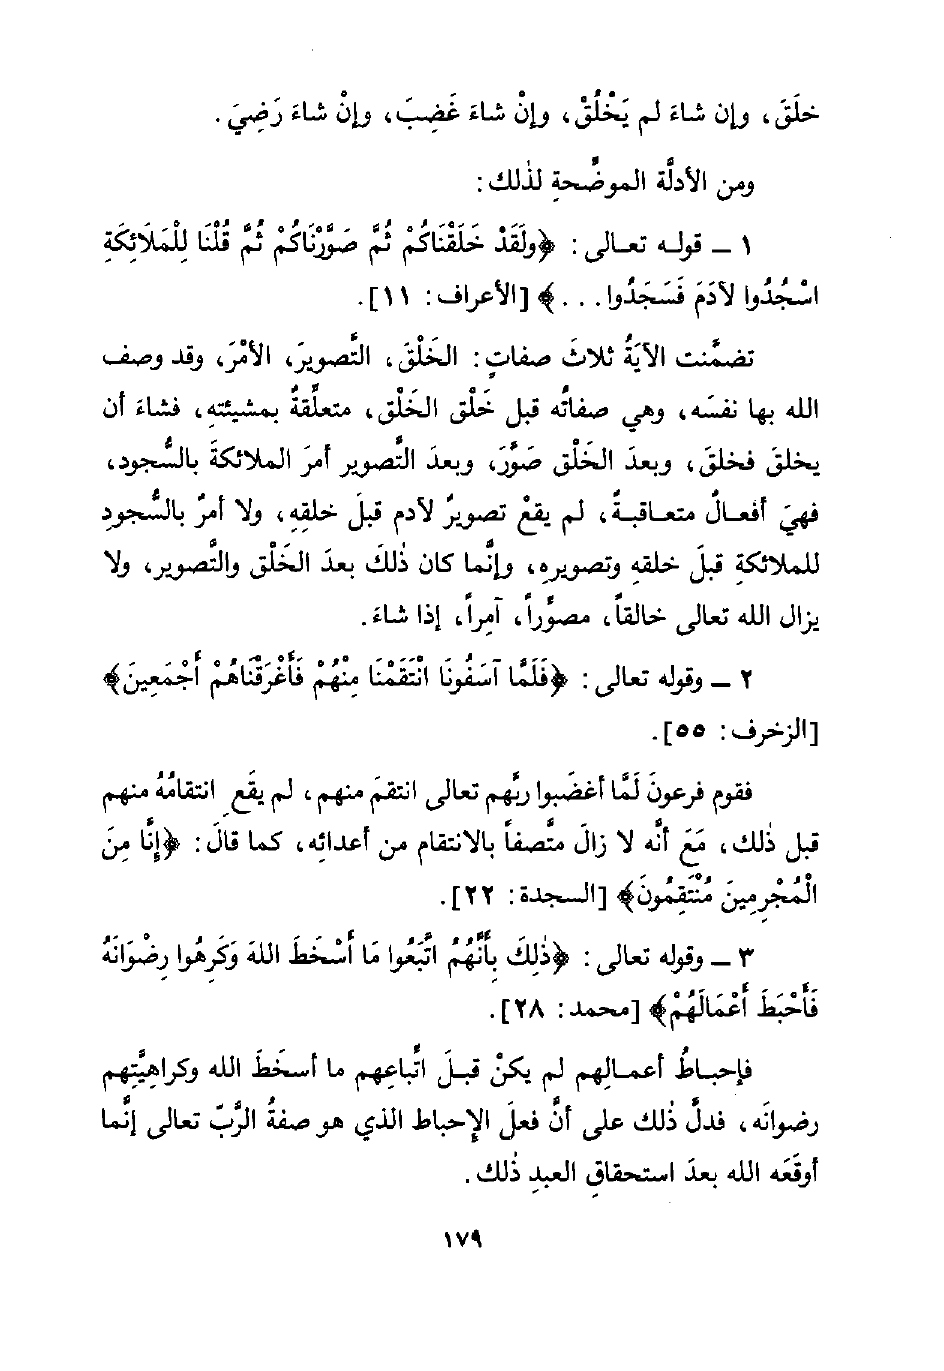 خلَقَ، وإن شاءَ لم يَخْلُقْ، وإنْ شاءَ غَضِبَ، وإنْ شاءَ رَضِيَ.
ومن الأدلَّة الموضِّحةِ لذٰلك:
١ ــ قولـه تعـالى: ﴿ولَقَدْ خَلَقْنَاكُمْ ثُمَّ صَوَّرْنَاكُمْ ثُمَّ قُلْنَا لِلْمَلَائِكَةِ
اسْجُدُوا لآدَمَ فَسَجَدُوا . . .﴾ [الأعراف: ١١].
تضمَّنت الآيَةُ ثلاثَ صفاتٍ: الخَلْقَ، التَّصويرَ، الأمْرَ، وقد وصف
الله بها نفسَه، وهي صفاتُه قبل خَلْق الخَلْق، متعلِّقةٌ بمشيئتِه، فشاءَ أن
يخلقَ فخلقَ، وبعدَ الخَلْق صَوَّرَ، وبعدَ التَّصوير أمرَ الملائكةَ بالسُّجود،
فهيَ أفعـالٌ متعـاقبـةٌ، لم يقعْ تصويرٌ لآدم قبلَ خلقِهِ، ولا أمرٌ بالسُّجودِ
للملائكةِ قبلَ خلقه وتصويره، وإنَّما كان ذٰلكَ بعدَ الخَلْق والتَّصوير، ولا
يزال الله تعالى خالقاً، مصوِّراً، آمِراً، إذا شاءَ.
٢ ــ وقوله تعالى: ﴿فَلَمَّا آسَفُونَا انْتَقَمْنَا مِنْهُمْ فَأَغْرَقْنَاهُمْ أَجْمَعِينَ﴾
[الزخرف: ٥٥].
فقوم فرعونَ لَمَّا أغضَبوا ربَّهم تعالى انتقمَ منهم، لم يقَعِ انتقامُهُ منهم
قبل ذٰلك، مَعَ أنَّه لا زالَ متَّصفاً بالانتقام من أعدائِه، كما قالَ: ﴿إِنَّا مِنَ
الْمُجْرِمِينَ مُنْتَقِمُونَ﴾ [السجدة: ٢٢].
٣ ــ وقوله تعالى: ﴿ذٰلِكَ بِأَنَّهُمُ اتَّبَعُوا مَا أَسْخَطَ اللهَ وَكَرِهُوا رِضْوَانَهُ
فَأَحْبَطَ أَعْمَالَهُمْ﴾ [محمد: ٢٨].
فإحبـاطُ أعمـالِهم لم يكنْ قبـلَ اتِّباعِهم ما أسخَطَ الله وكراهِيَّتِهم
رضوانَه، فدلَّ ذٰلك على أنَّ فعلَ الإِحباط الذي هو صفةُ الرَّبّ تعالى إنَّما
أوقَعَه الله بعدَ استحقاقِ العبدِ ذٰلك.
١٧٩